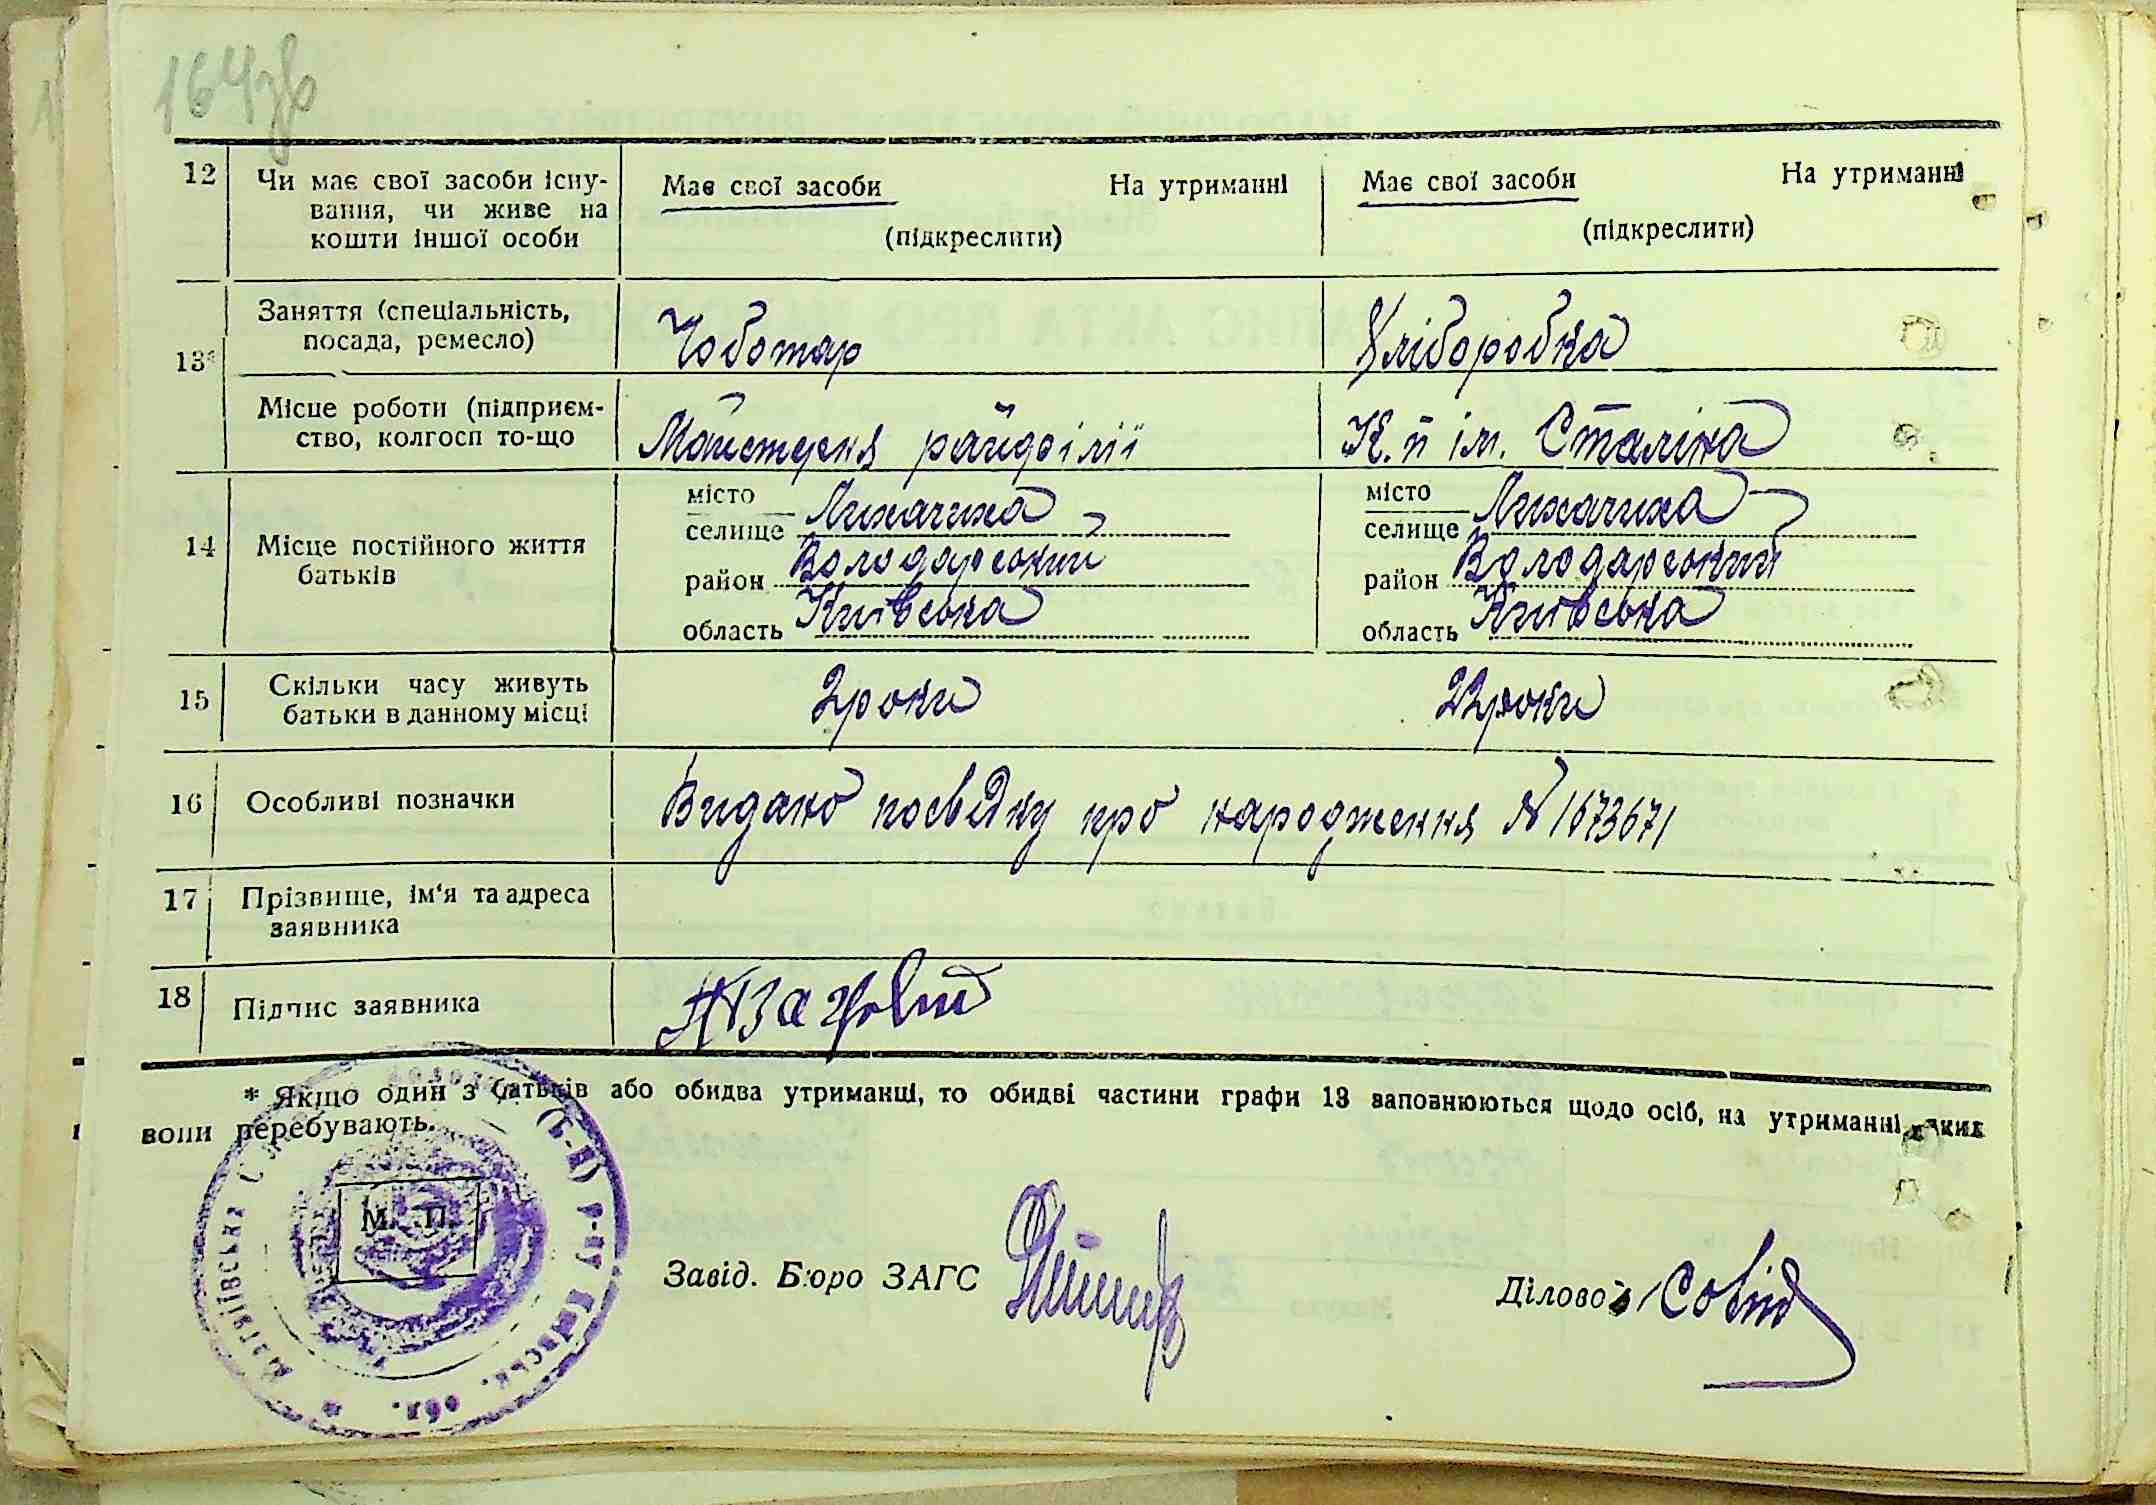 164зв
12 Чи має свої засоби існу-
вання, чи живе на
кошти іншої особи
Має свої засоби На утриманні
(підкреслити)
Має свої засоби На утриманні
(підкреслити)
13*
Заняття (спеціальність,
посада, ремесло)
Чоботар
Хліборобка
Місце роботи (підприєм-
ство, колгосп то-що
Майстерня
К. п ім. Сталіна
14 Місце постійного життя
батьків
місто
селище Лихачиха
район Володарський
область Київська
місто
селище Лихачиха
район Володарський
область Київська
15 Скільки часу живуть
батьки в данному місці
2 роки
22 роки
16 Особливі позначки
Видано посвідку про народження № 1673671
17 Прізвище, ім'я та адреса
заявника
18 Підпис заявника
* Якщо один з батьків або обидва утриманці, то обидві частини графи 13 заповнюються щодо осіб, на утриманні яких
вони перебувають.
М. П.
(Б-Ц) р-ну Київськ. обл.
Завід. Бюро ЗАГС
Діловод